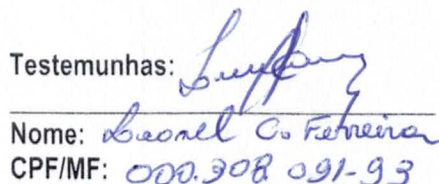 Testemunhas:
Nome: Leonel C. Ferreira
CPF/MF: 000.308 091-93